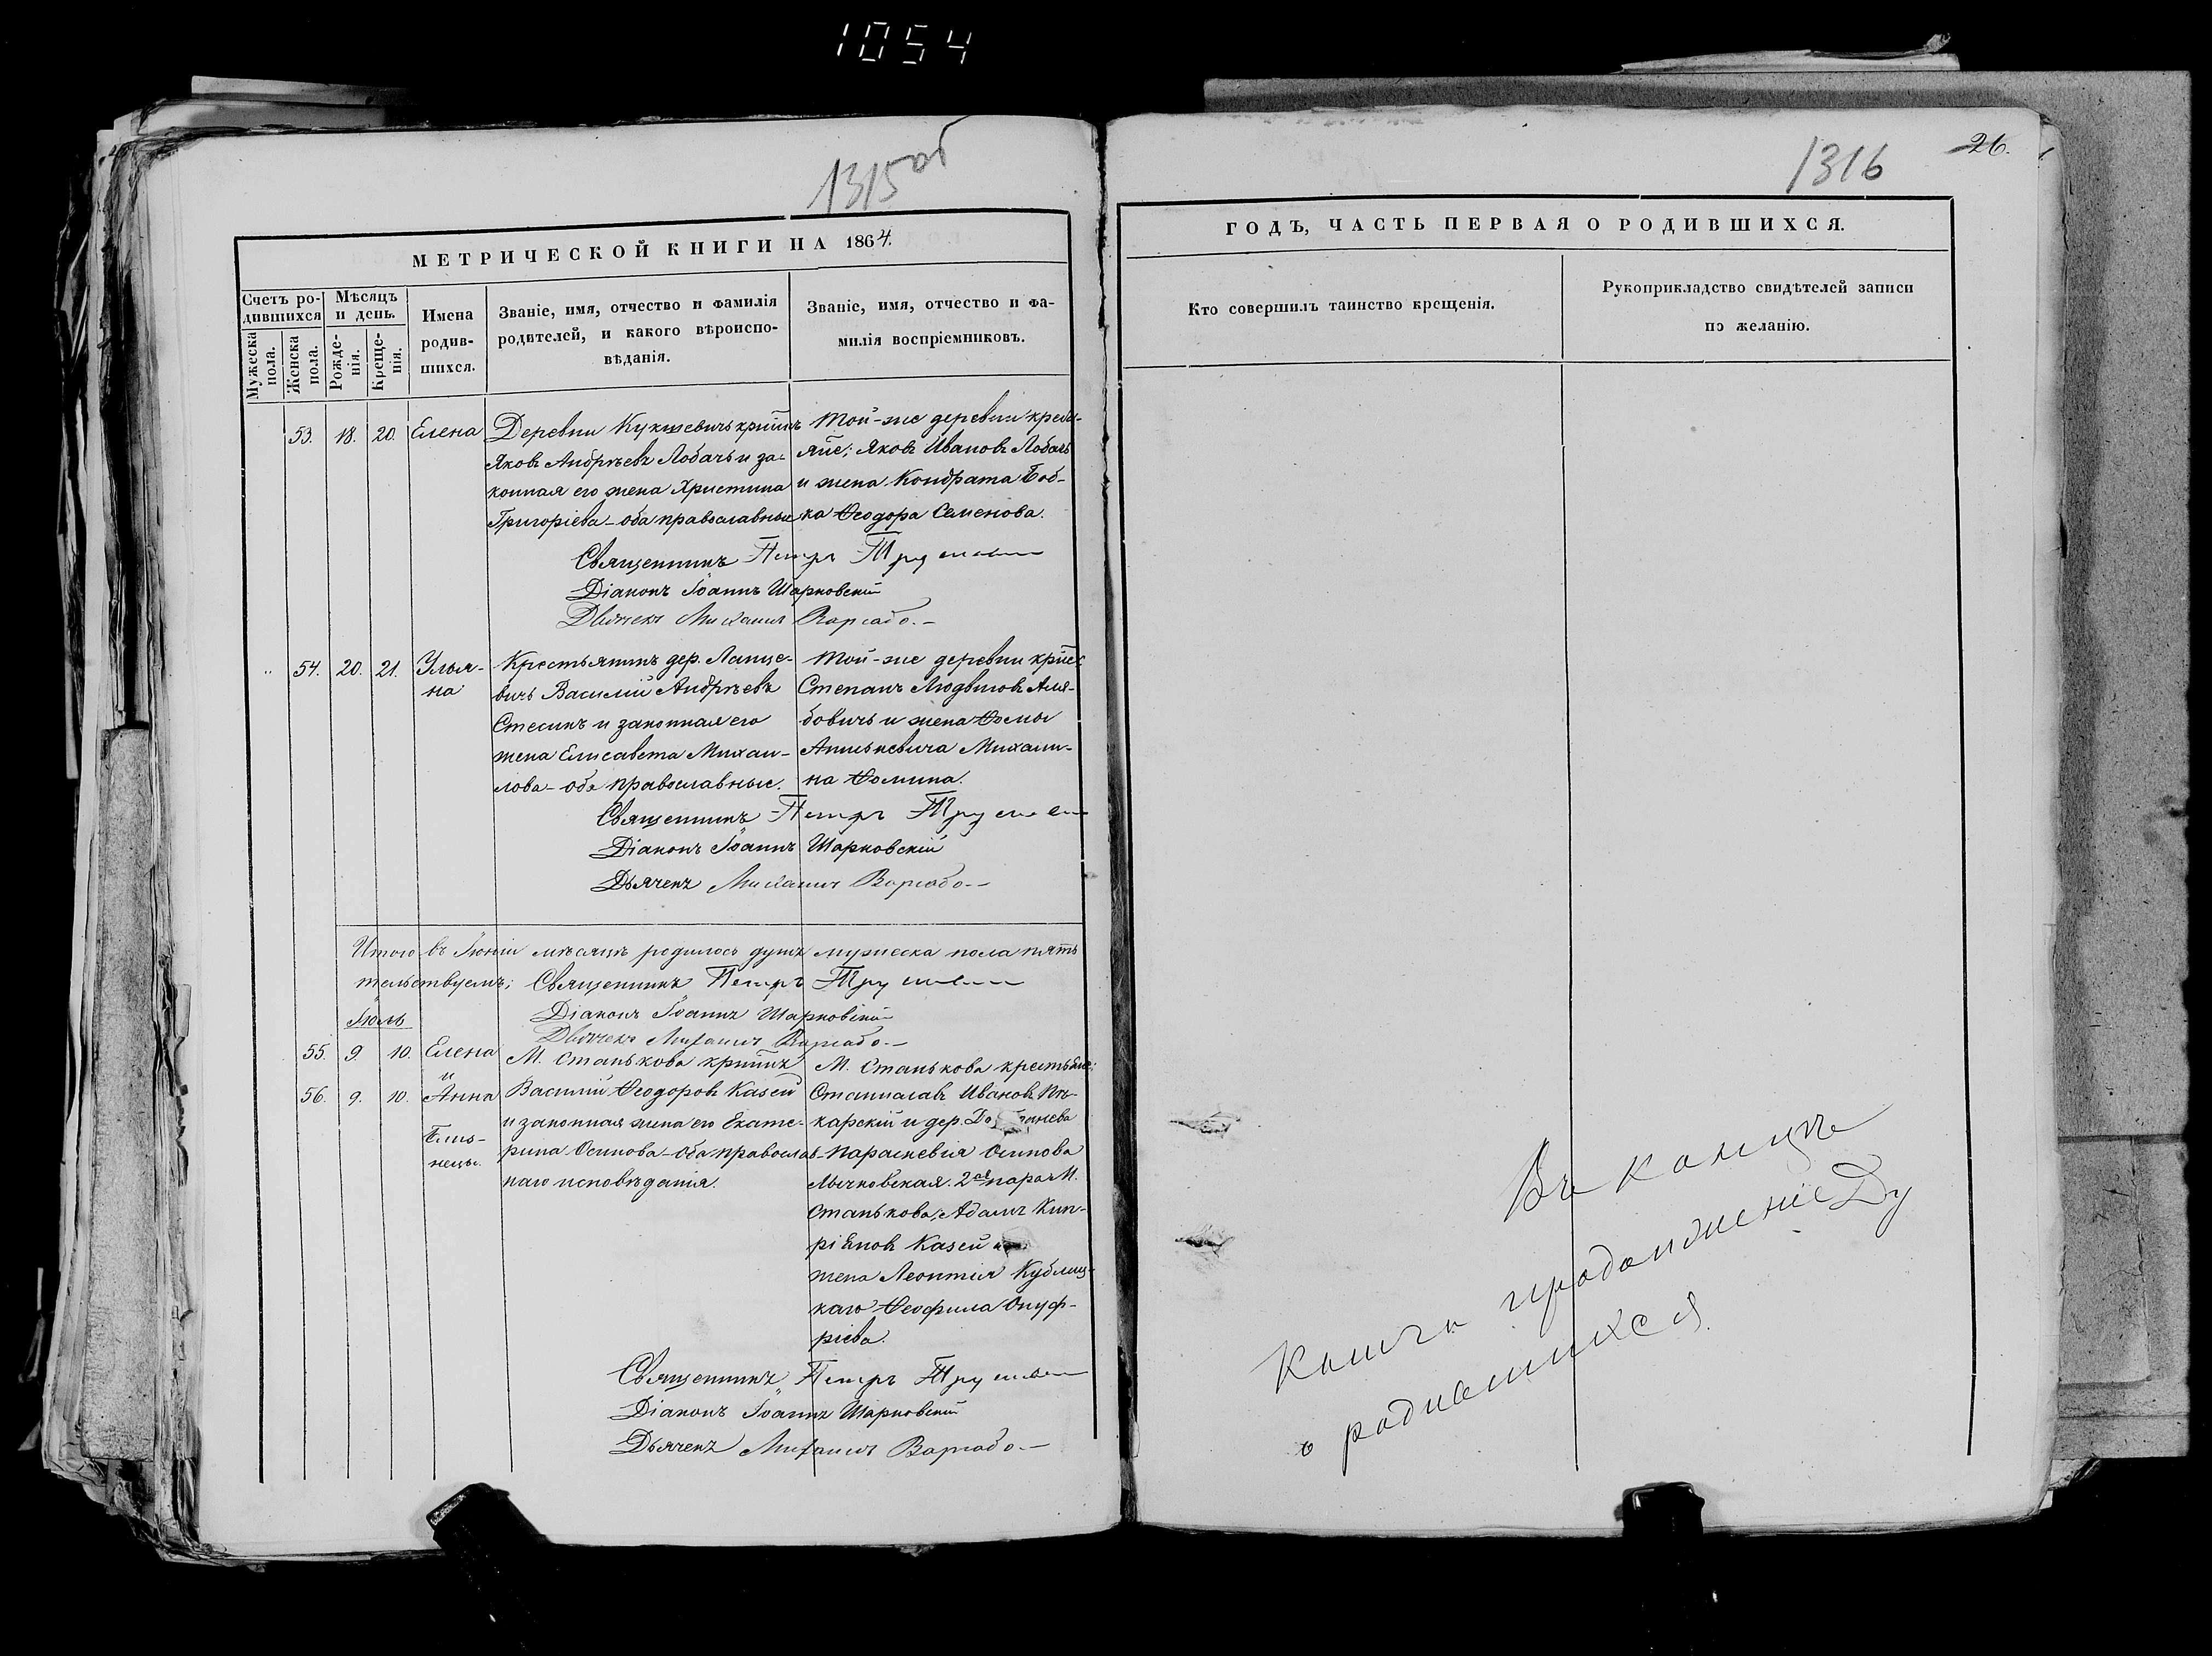 1054
1315об
МЕТРИЧЕСКОЙ КНИГИ НА 1864.
Счетъ ро-
дившихся
Мужеска
пола.
Женска
пола.
Мѣсяцъ
и день.
Рожде-
нія.
Креще-
нія.
Имена
родив-
шихся.
Званіе, имя, отчество и фамилія
родителей, и какого вѣроиспо-
вѣданія.
Званіе, имя, отчество и фа-
милія воспріемниковъ.
53. 18. 20. Елена
Деревни Кукшевичъ
Яковъ Андреевъ Лобачъ и за-
конная его жена Христина
Григоріева - оба православные
Той-же деревни
Яковъ Ивановъ Лобачъ
и жена Кондрата Боб-
ка Ѳеодора Семенова.
Священникъ Петръ
Діаконъ Іоаннъ Шарковскій
Дьячекъ Михаилъ
54. 20. 21. Улья-
на
Крестьянинъ дер.
Василій Андреевъ
и законная его
жена Елисавета Михаи-
лова - оба православные.
Той-же деревни
Степанъ Людвиговъ
и жена Ѳомы
Ѳомина.
Священникъ Петръ
Діаконъ Іоаннъ Шарковскій
Дьячекъ Михаилъ
Итого въ Іюніи мѣсяцѣ родилось душъ мужеска пола пять
тельствуемъ; Священникъ Петръ
Діаконъ Іоаннъ Шарковскій
Дьячекъ Михаилъ
Іюль
55. 9. 10. Елена
и
56. 9. 10. Анна
Близ-
нецы.
М. Станькова
Василій Ѳеодоровъ Касей
и законная жена его Екате-
рина Осипова - оба православ-
наго исповѣданія.
М. Станькова крестьяне:
Станиславъ Ивановъ Пѣ-
карскій и дер.
Параскевія Осипова
2ая пара М.
Станькова, Адамъ Кип-
ріяновъ Касей и
жена Леонтія Кублиц-
каго Ѳеофила Онуф-
ріева.
Священникъ Петръ
Діаконъ Іоаннъ Шарковскій
Дьячекъ Михаилъ
1316
26.
ГОДЪ, ЧАСТЬ ПЕРВАЯ О РОДИВШИХСЯ.
Кто совершилъ таинство крещенія.
Рукоприкладство свидѣтелей записи
по желанію.
Въ концѣ
книги продолженіе
о родившихся